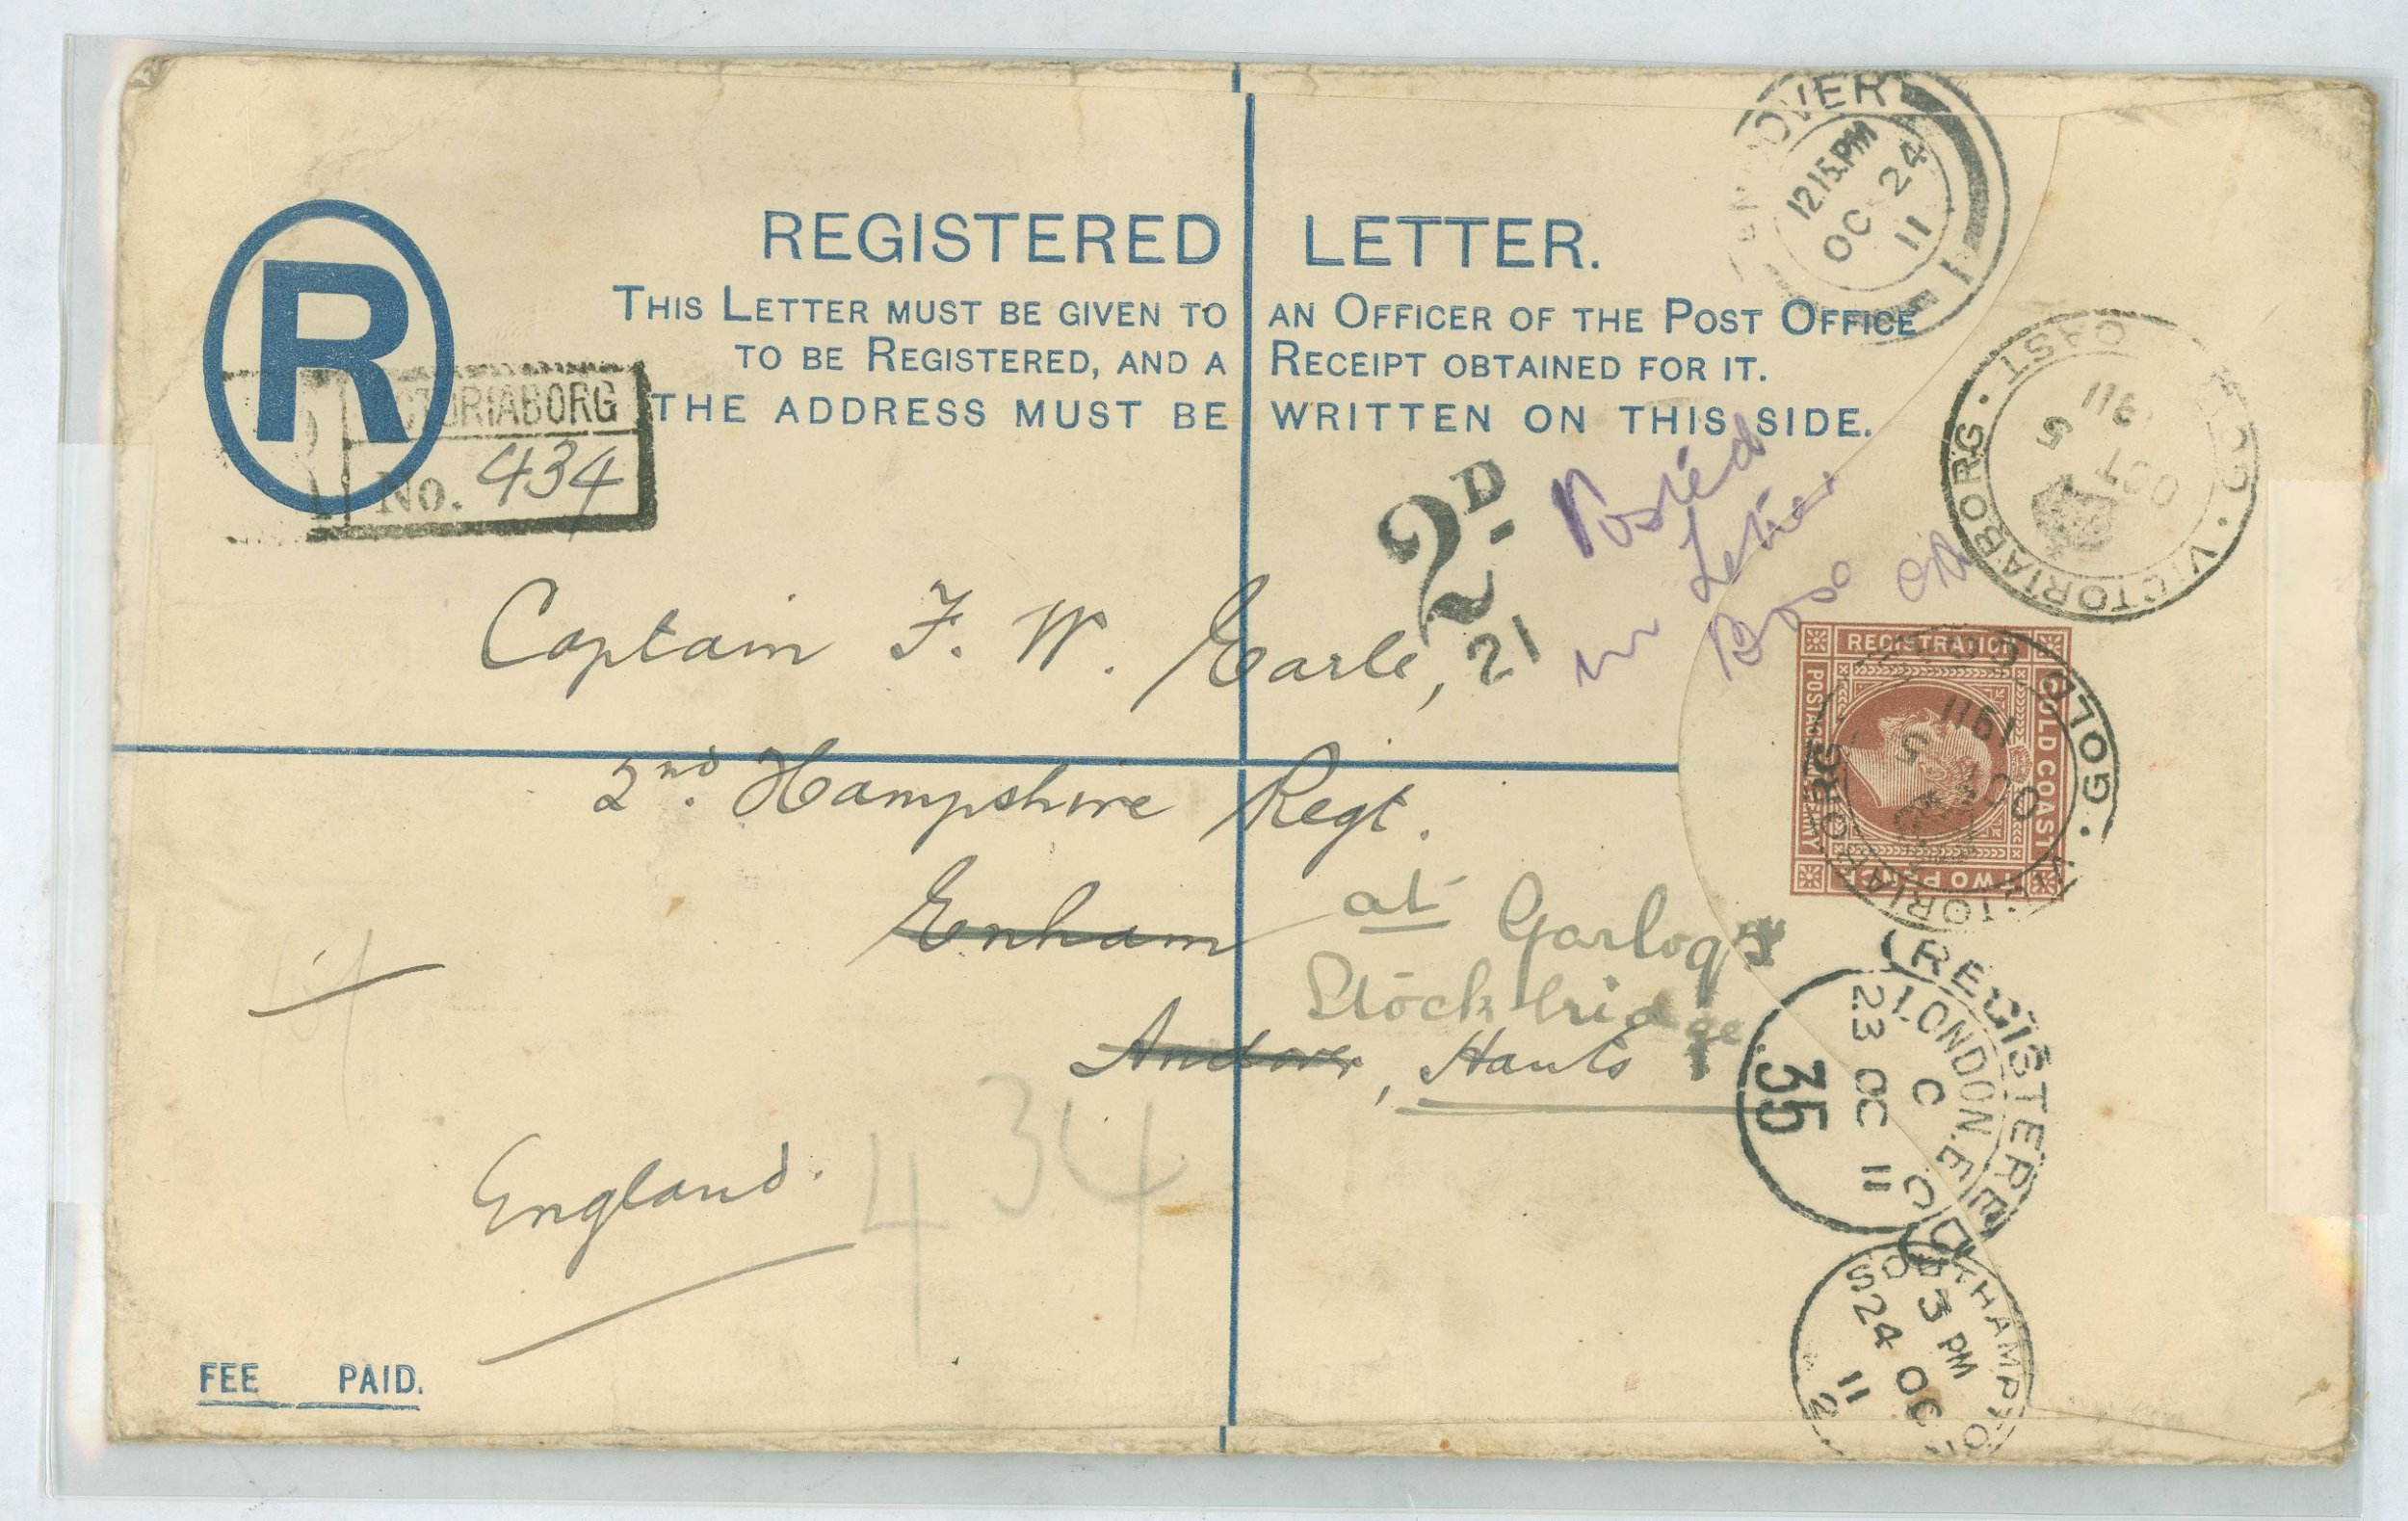 REGISTERED LETTER.
THIS LETTER MUST BE GIVEN TO AN OFFICER OF THE POST OFFICE
TO BE REGISTERED, AND A RECEIPT OBTAINED FOR IT.
THE ADDRESS MUST BE WRITTEN ON THIS SIDE.
R
VICTORIABORG
No. 434
OVER
12.15.PM
OC 24
11
VICTORIABORG
OCT 5
1911
2D
21
Posted
in Letter
Box
Captain F. W. Earle,
2nd. Hampshire Regt.
Enham at Garlogs
Stockbridge
Andover, Hants
England.
434
REGISTRATION
GOLD COAST
TWO PENCE
POSTAGE
GOLD
VICTORIABORG
OCT 5
1911
REGISTERED
LONDON.E.C
C
23 OC 11
35
SOUTHAMPTON
3 PM
24 OC
11
2
FEE PAID.